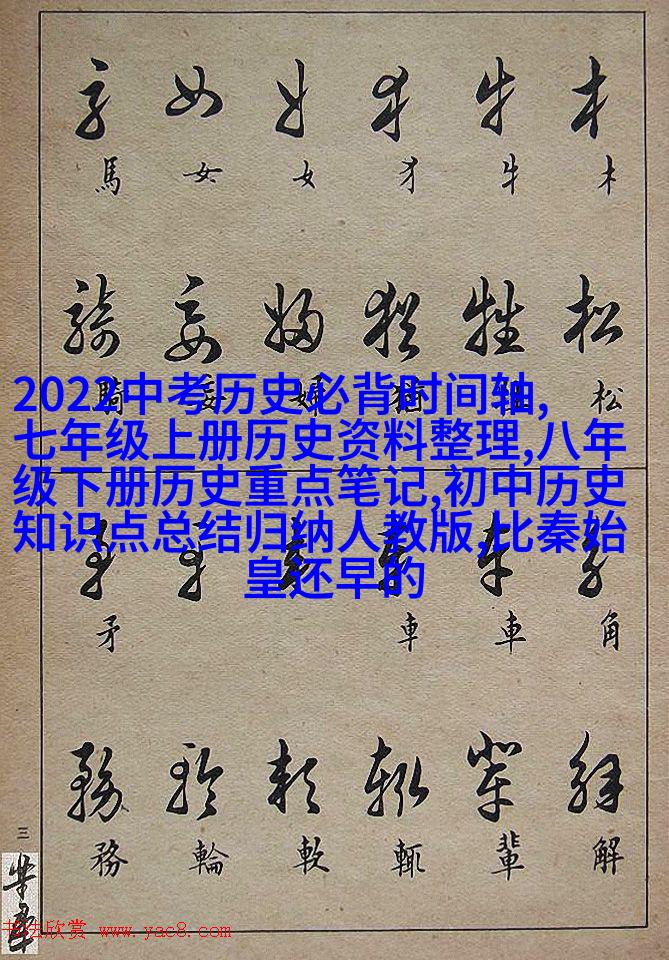 馬 女 女 犭 牛 木
騎 妄 婦 猶 牲 松
2022中考历史必背时间轴,
七年级上册历史资料整理,八年
级下册历史重点笔记,初中历史
知识点总结归纳人教版,比秦始
皇还早的
矛 車 車 角
務 輪 軟 輒 輩 解
三
书法欣赏 www.yac8.com